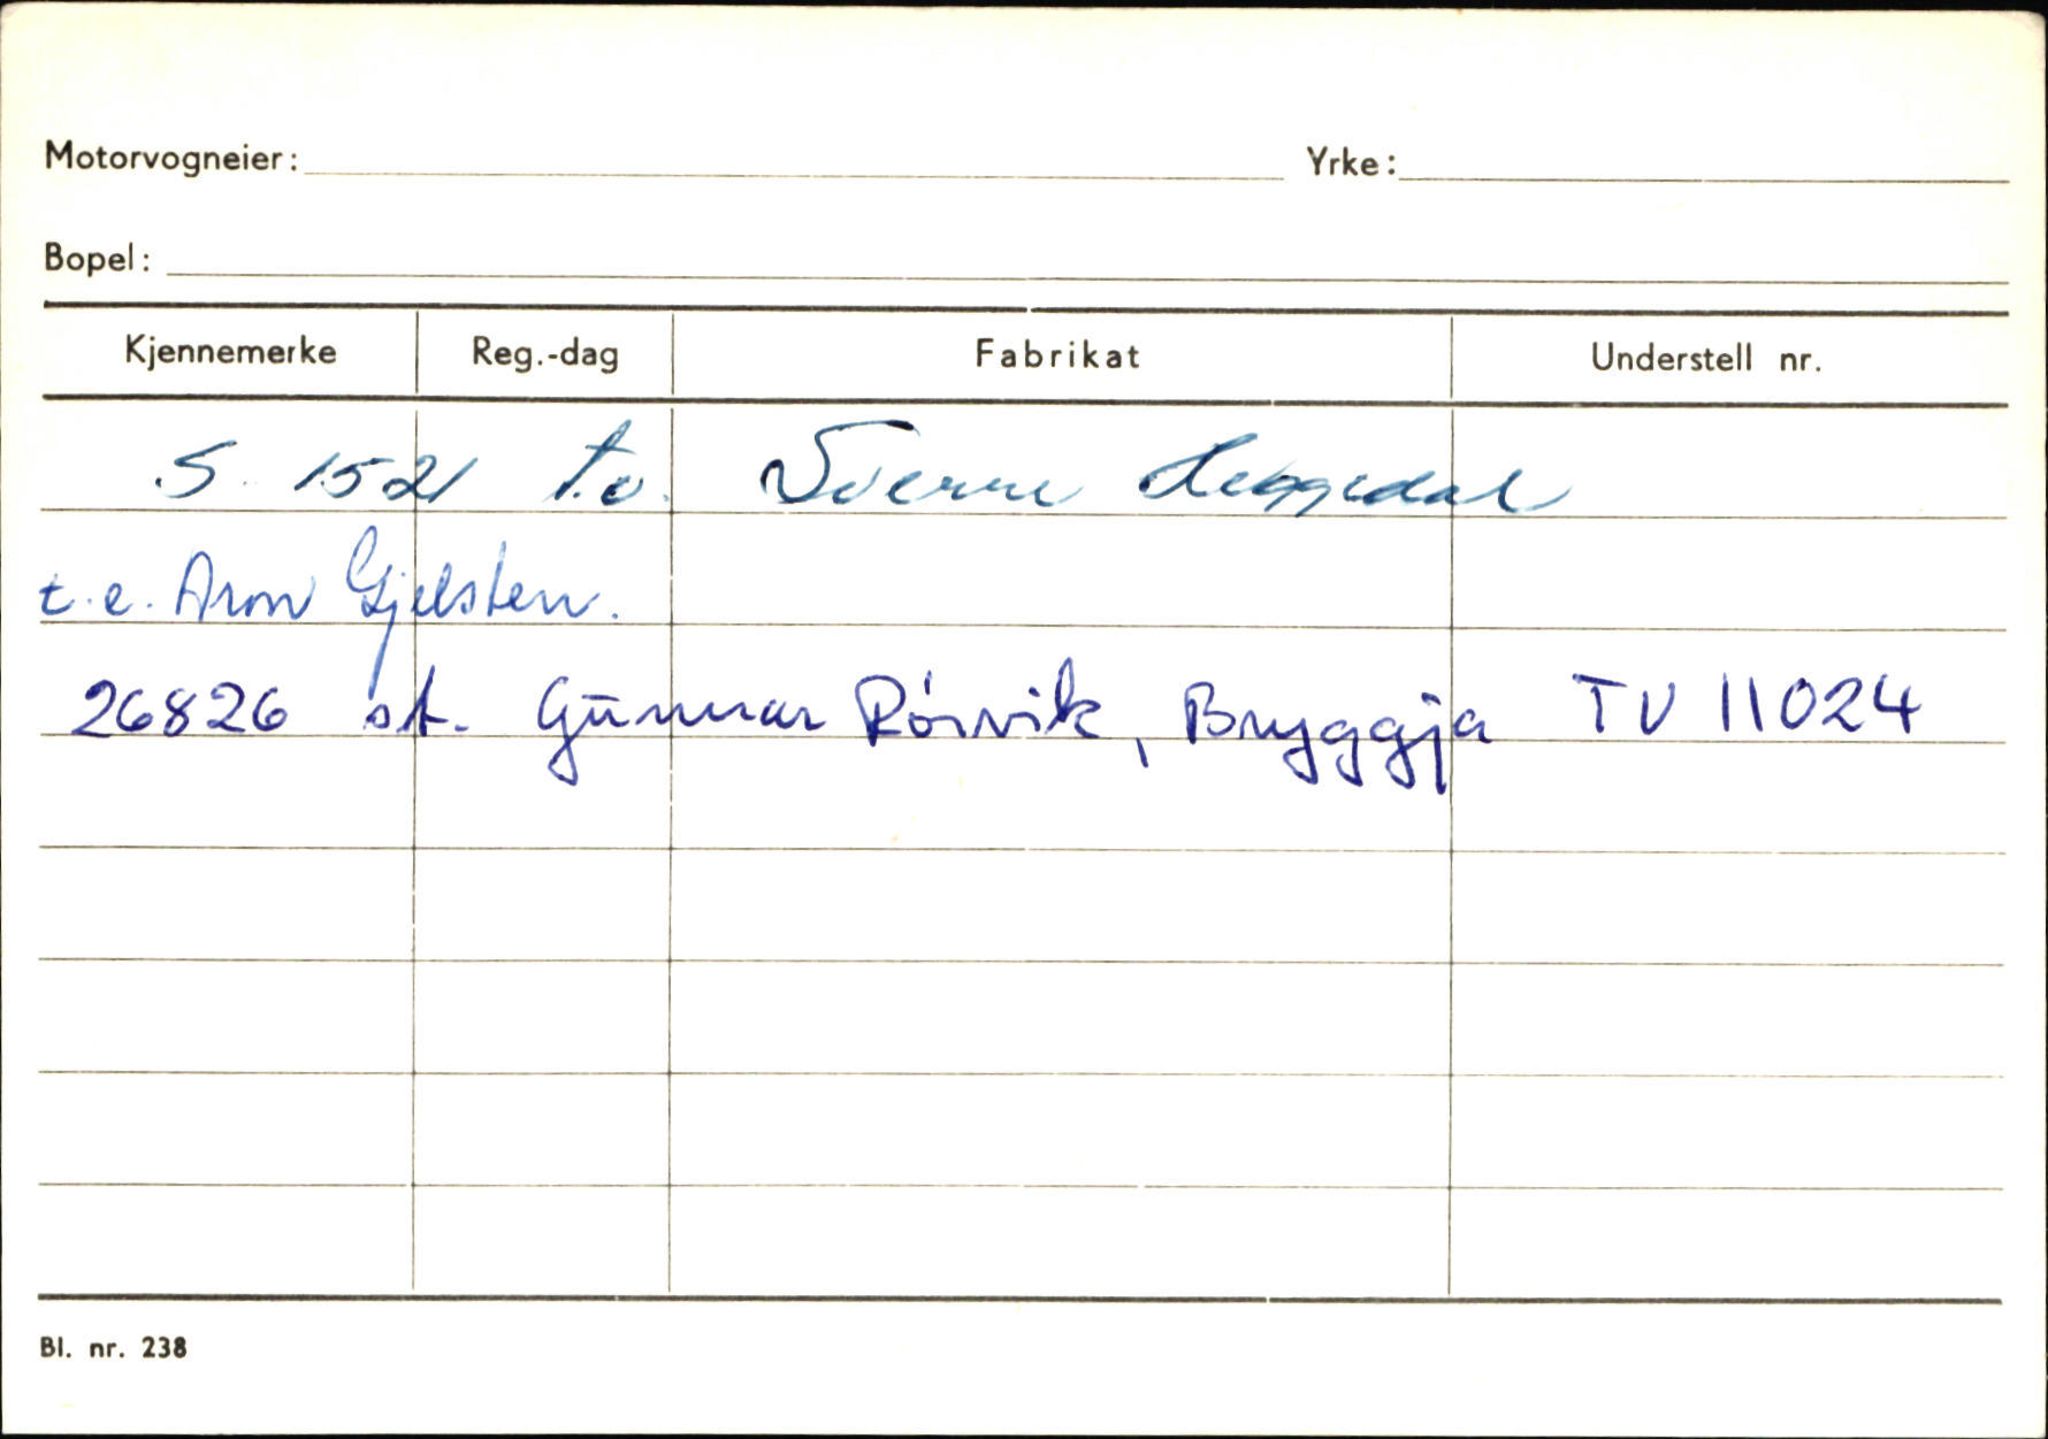 Motorvogneier: Yrke:
Bopel:
Kjennemerke Reg.-dag Fabrikat Understell nr.
S. 1521 t.o. Sverre
t.e. Aron Gjelsten.
26826 st. Gunnar Rórvik, Bryggja TV 11024
Bl. nr. 238